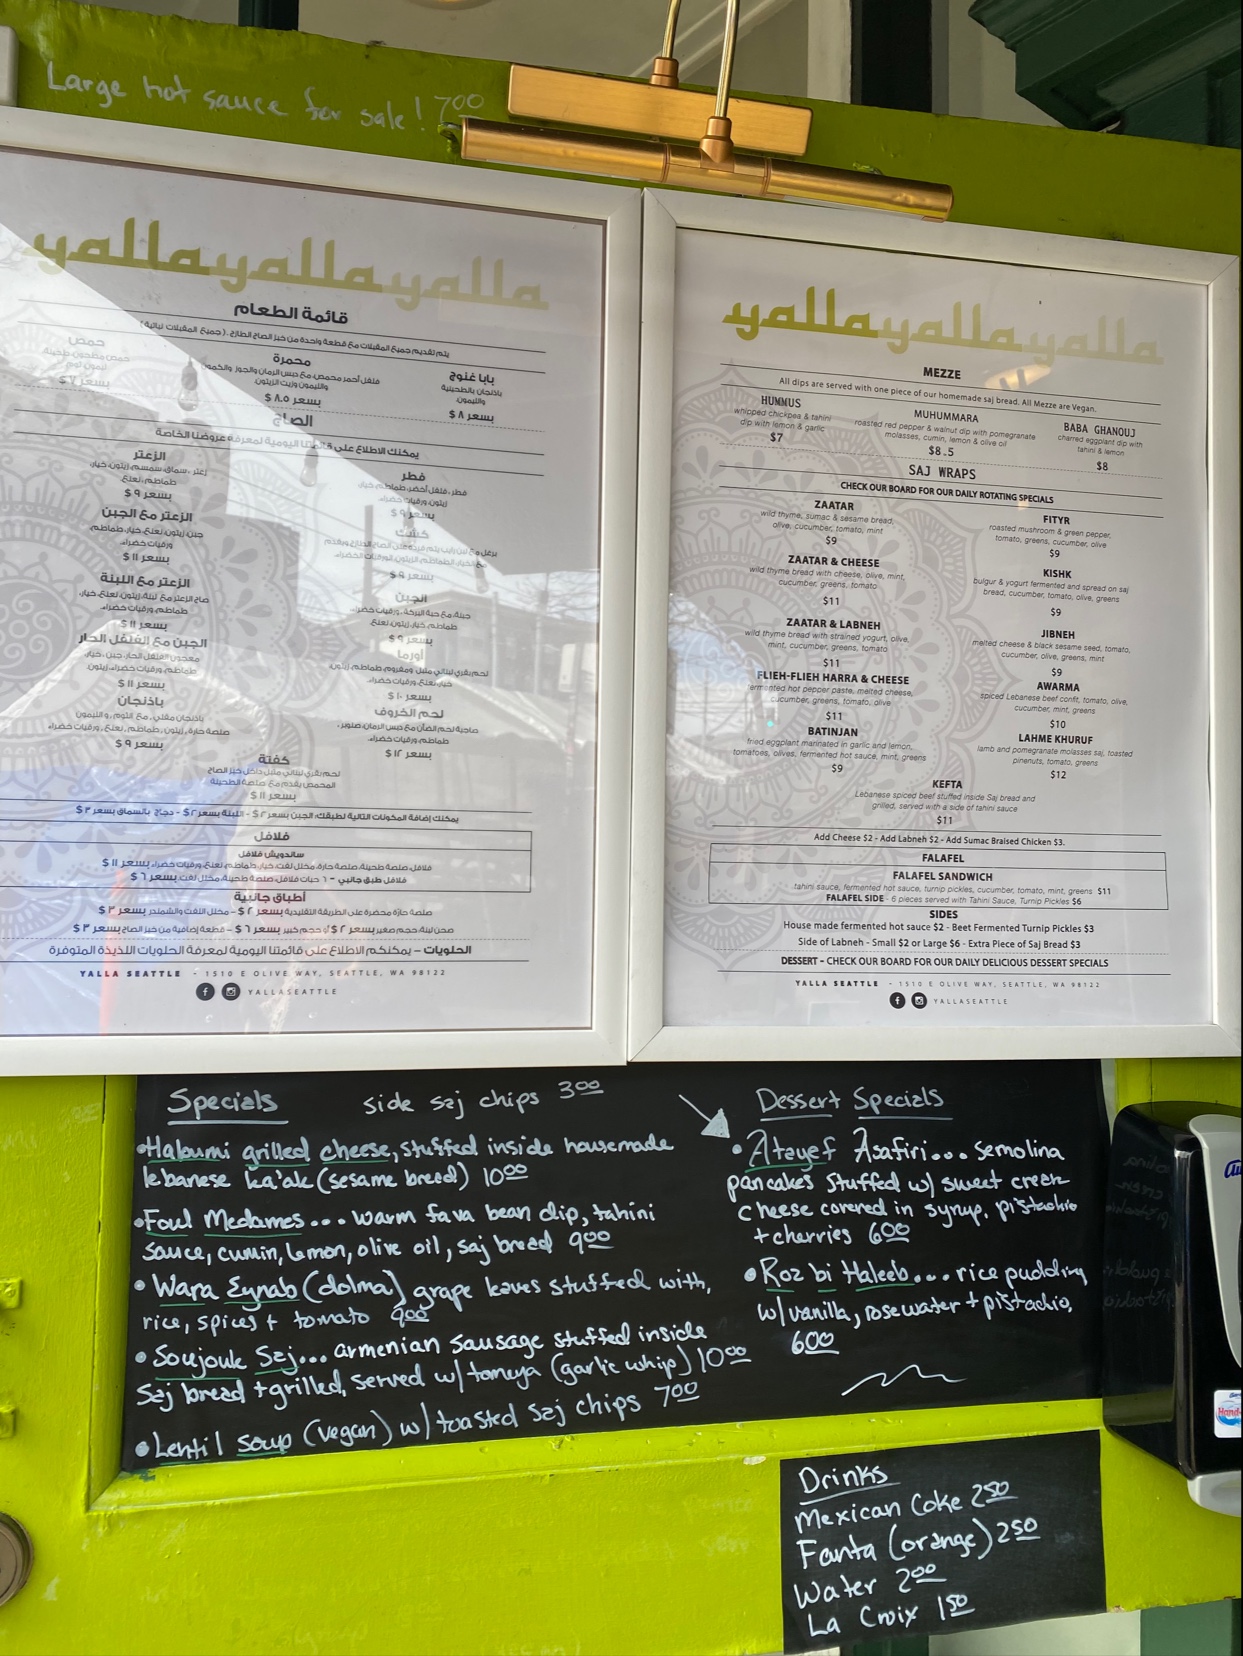 Large hot sauce for sale! 7.00
yallayallayalla
قائمة الطعام
يتم تقديم جميع المقبلات مع قطعة واحدة من خبز الصاج الطازج. (جميع المقبلات نباتية)
حمص
بسعر ٧ $
محمرة
فلفل أحمر محمص، مع دبس الرمان والجوز والكمون
والليمون وزيت الزيتون
بسعر ٨.٥ $
بابا غنوج
باذنجان بالطحينية
والليمون.
بسعر ٨ $
الصاج
يمكنك الاطلاع على قائمتنا اليومية لمعرفة عروضنا الخاصة
الزعتر
زعتر، سماق، سمسم، زيتون، خيار،
طماطم، نعنع.
بسعر ٩ $
الزعتر مع الجبن
جبن، زيتون، نعنع، خيار، طماطم،
ورقيات خضراء.
بسعر ١١ $
الزعتر مع اللبنة
صاج الزعتر مع لبنة، زيتون، نعنع، خيار،
طماطم، ورقيات خضراء.
بسعر ١١ $
الجبن مع الفلفل الحار
معجون الفلفل الحار، جبن، خيار،
طماطم، ورقيات خضراء، زيتون.
بسعر ١١ $
باذنجان
باذنجان مقلي، مع الثوم، و الليمون
صلصة حارة، زيتون، طماطم، نعنع، ورقيات خضراء
بسعر ٩ $
فطر
فطر، فلفل أخضر، طماطم، خيار،
زيتون، ورقيات خضراء.
بسعر ٩ $
كشك
بسعر ٩ $
الجبن
جبنة، مع حبة البركة، ورقيات خضراء،
طماطم، خيار، زيتون، نعنع.
بسعر ٩ $
أورما
لحم بقري لبناني متبل ومفروم، طماطم، زيتون،
خيار، نعنع، ورقيات خضراء.
بسعر ١٠ $
لحم الخروف
صاجية لحم الضأن مع دبس الرمان، صنوبر،
طماطم، ورقيات خضراء.
بسعر ١٢ $
كفتة
لحم بقري لبناني متبل داخل خبز الصاج
المحمص يقدم مع صلصة الطحينة
بسعر ١١ $
يمكنك إضافة المكونات التالية لطبقك: الجبن بسعر ٢ $ - اللبنة بسعر ٢ $ - دجاج بالسماق بسعر ٣ $
فلافل
ساندويش فلافل
فلافل، صلصة طحينة، صلصة حارة، مخلل لفت، خيار، طماطم، نعنع، ورقيات خضراء. بسعر ١١ $
فلافل طبق جانبي - ٦ حبات فلافل، صلصة طحينة، مخلل لفت بسعر ٦ $
أطباق جانبية
صلصة حارة محضرة على الطريقة التقليدية بسعر ٢ $ - مخلل اللفت والشمندر بسعر ٣ $
صحن لبنة حجم صغير بسعر ٢ $ أو حجم كبير بسعر ٦ $ - قطعة إضافية من خبز الصاج بسعر ٣ $
الحلويات - يمكنكم الاطلاع على قائمتنا اليومية لمعرفة الحلويات اللذيذة المتوفرة
YALLA SEATTLE - 1510 E OLIVE WAY, SEATTLE, WA 98122
YALLASEATTLE
yallayallayalla
MEZZE
All dips are served with one piece of our homemade saj bread. All Mezze are Vegan.
HUMMUS
whipped chickpea & tahini
dip with lemon & garlic
$7
MUHUMMARA
roasted red pepper & walnut dip with pomegranate
molasses, cumin, lemon & olive oil
$8.5
BABA GHANOUJ
charred eggplant dip with
tahini & lemon
$8
SAJ WRAPS
CHECK OUR BOARD FOR OUR DAILY ROTATING SPECIALS
ZAATAR
wild thyme, sumac & sesame bread,
olive, cucumber, tomato, mint
$9
ZAATAR & CHEESE
wild thyme bread with cheese, olive, mint,
cucumber, greens, tomato
$11
ZAATAR & LABNEH
wild thyme bread with strained yogurt, olive,
mint, cucumber, greens, tomato
$11
FLIEH-FLIEH HARRA & CHEESE
fermented hot pepper paste, melted cheese,
cucumber, greens, tomato, olive
$11
BATINJAN
fried eggplant marinated in garlic and lemon,
tomatoes, olives, fermented hot sauce, mint, greens
$9
FITYR
roasted mushroom & green pepper,
tomato, greens, cucumber, olive
$9
KISHK
bulgur & yogurt fermented and spread on saj
bread, cucumber, tomato, olive, greens
$9
JIBNEH
melted cheese & black sesame seed, tomato,
cucumber, olive, greens, mint
$9
AWARMA
spiced Lebanese beef confit, tomato, olive,
cucumber, mint, greens
$10
LAHME KHURUF
lamb and pomegranate molasses saj, toasted
pinenuts, tomato, greens
$12
KEFTA
Lebanese spiced beef stuffed inside Saj bread and
grilled, served with a side of tahini sauce
$11
Add Cheese $2 - Add Labneh $2 - Add Sumac Braised Chicken $3.
FALAFEL
FALAFEL SANDWICH
tahini sauce, fermented hot sauce, turnip pickles, cucumber, tomato, mint, greens $11
FALAFEL SIDE - 6 pieces served with Tahini Sauce, Turnip Pickles $6
SIDES
House made fermented hot sauce $2 - Beet Fermented Turnip Pickles $3
Side of Labneh - Small $2 or Large $6 - Extra Piece of Saj Bread $3
DESSERT - CHECK OUR BOARD FOR OUR DAILY DELICIOUS DESSERT SPECIALS
YALLA SEATTLE - 1510 E OLIVE WAY, SEATTLE, WA 98122
YALLASEATTLE
Specials
side saj chips 3.00
•Haloumi grilled cheese, stuffed inside housemade
lebanese ka'ak (sesame bread) 10.00
•Foul Medames... warm fava bean dip, tahini
sauce, cumin, lemon, olive oil, saj bread 9.00
• Wara Eynab (dolma) grape leaves stuffed with,
rice, spices + tomato 9.00
• Soujouk Saj... armenian sausage stuffed inside
Saj bread + grilled, served w/ tomeya (garlic whip) 10.00
•Lentil soup (vegan) w/ toasted saj chips 7.00
Dessert Specials
• Atayef Asafiri... semolina
pancakes stuffed w/ sweet cream
cheese covered in syrup, pistachio
+ cherries 6.00
• Roz bi Haleeb... rice pudding
w/ vanilla, rosewater + pistachio,
6.00
Drinks
Mexican Coke 2.50
Fanta (orange) 2.50
Water 2.00
La Croix 1.50